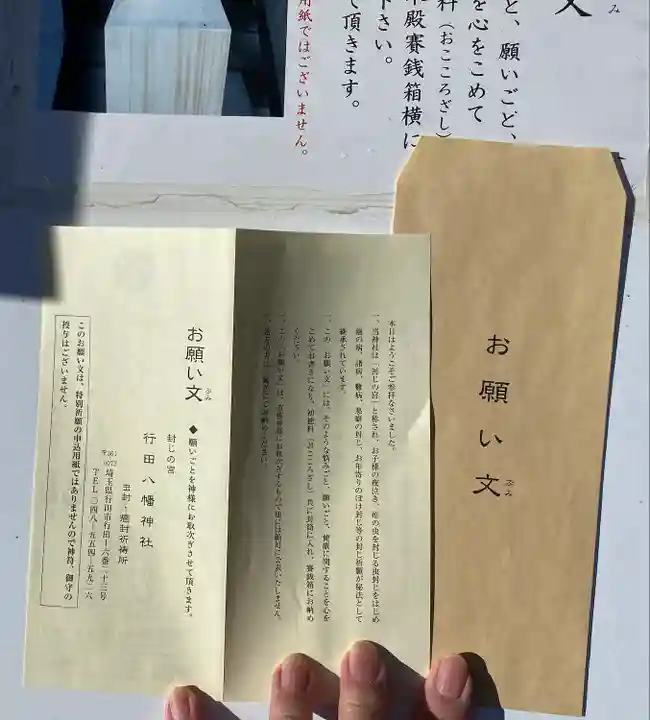 文
み
と、願いごと、
を心をこめて
料（おこころざし）
本殿賽銭箱横に
下さい。
て頂きます。
用紙ではございません。
お願い文
ぶみ
本日はようこそご参拝なさいました。
一、当神社は「封じの宮」と称され、お子様の夜泣き、疳の虫を封じる虫封じをはじめ
癌の病、諸病、難病、悪癖の封じ、お年寄りのぼけ封じ等の封じ祈願が秘法として
継承されています。
一、この「お願い文」には、そのような悩みごと、願いごと、健康に関することを心を
こめてお書きになり、初穂料（おこころざし）共に封筒に入れ、賽銭箱にお納め
ください。
お願い文
ぶみ
◆願いごとを神様にお取次ぎさせて頂きます。
封じの宮
行田八幡神社
虫封・癌封祈祷所
〒361-0073
埼玉県行田市行田十六番二十三号
TEL〇四八-五五四-五九二六
このお願い文は、特別祈願の申込用紙ではありませんので神符、御守の
授与はございません。